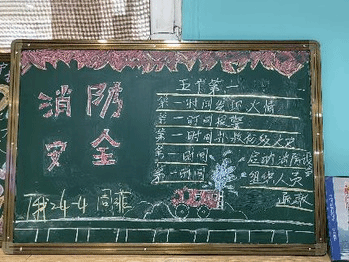 消防
安全
五个第一
第一时间发现火情
第一时间报警
第一时间扑救初始火灾
第一时间启动消防设
第一时间组织人员
疏散
24-4 周菲